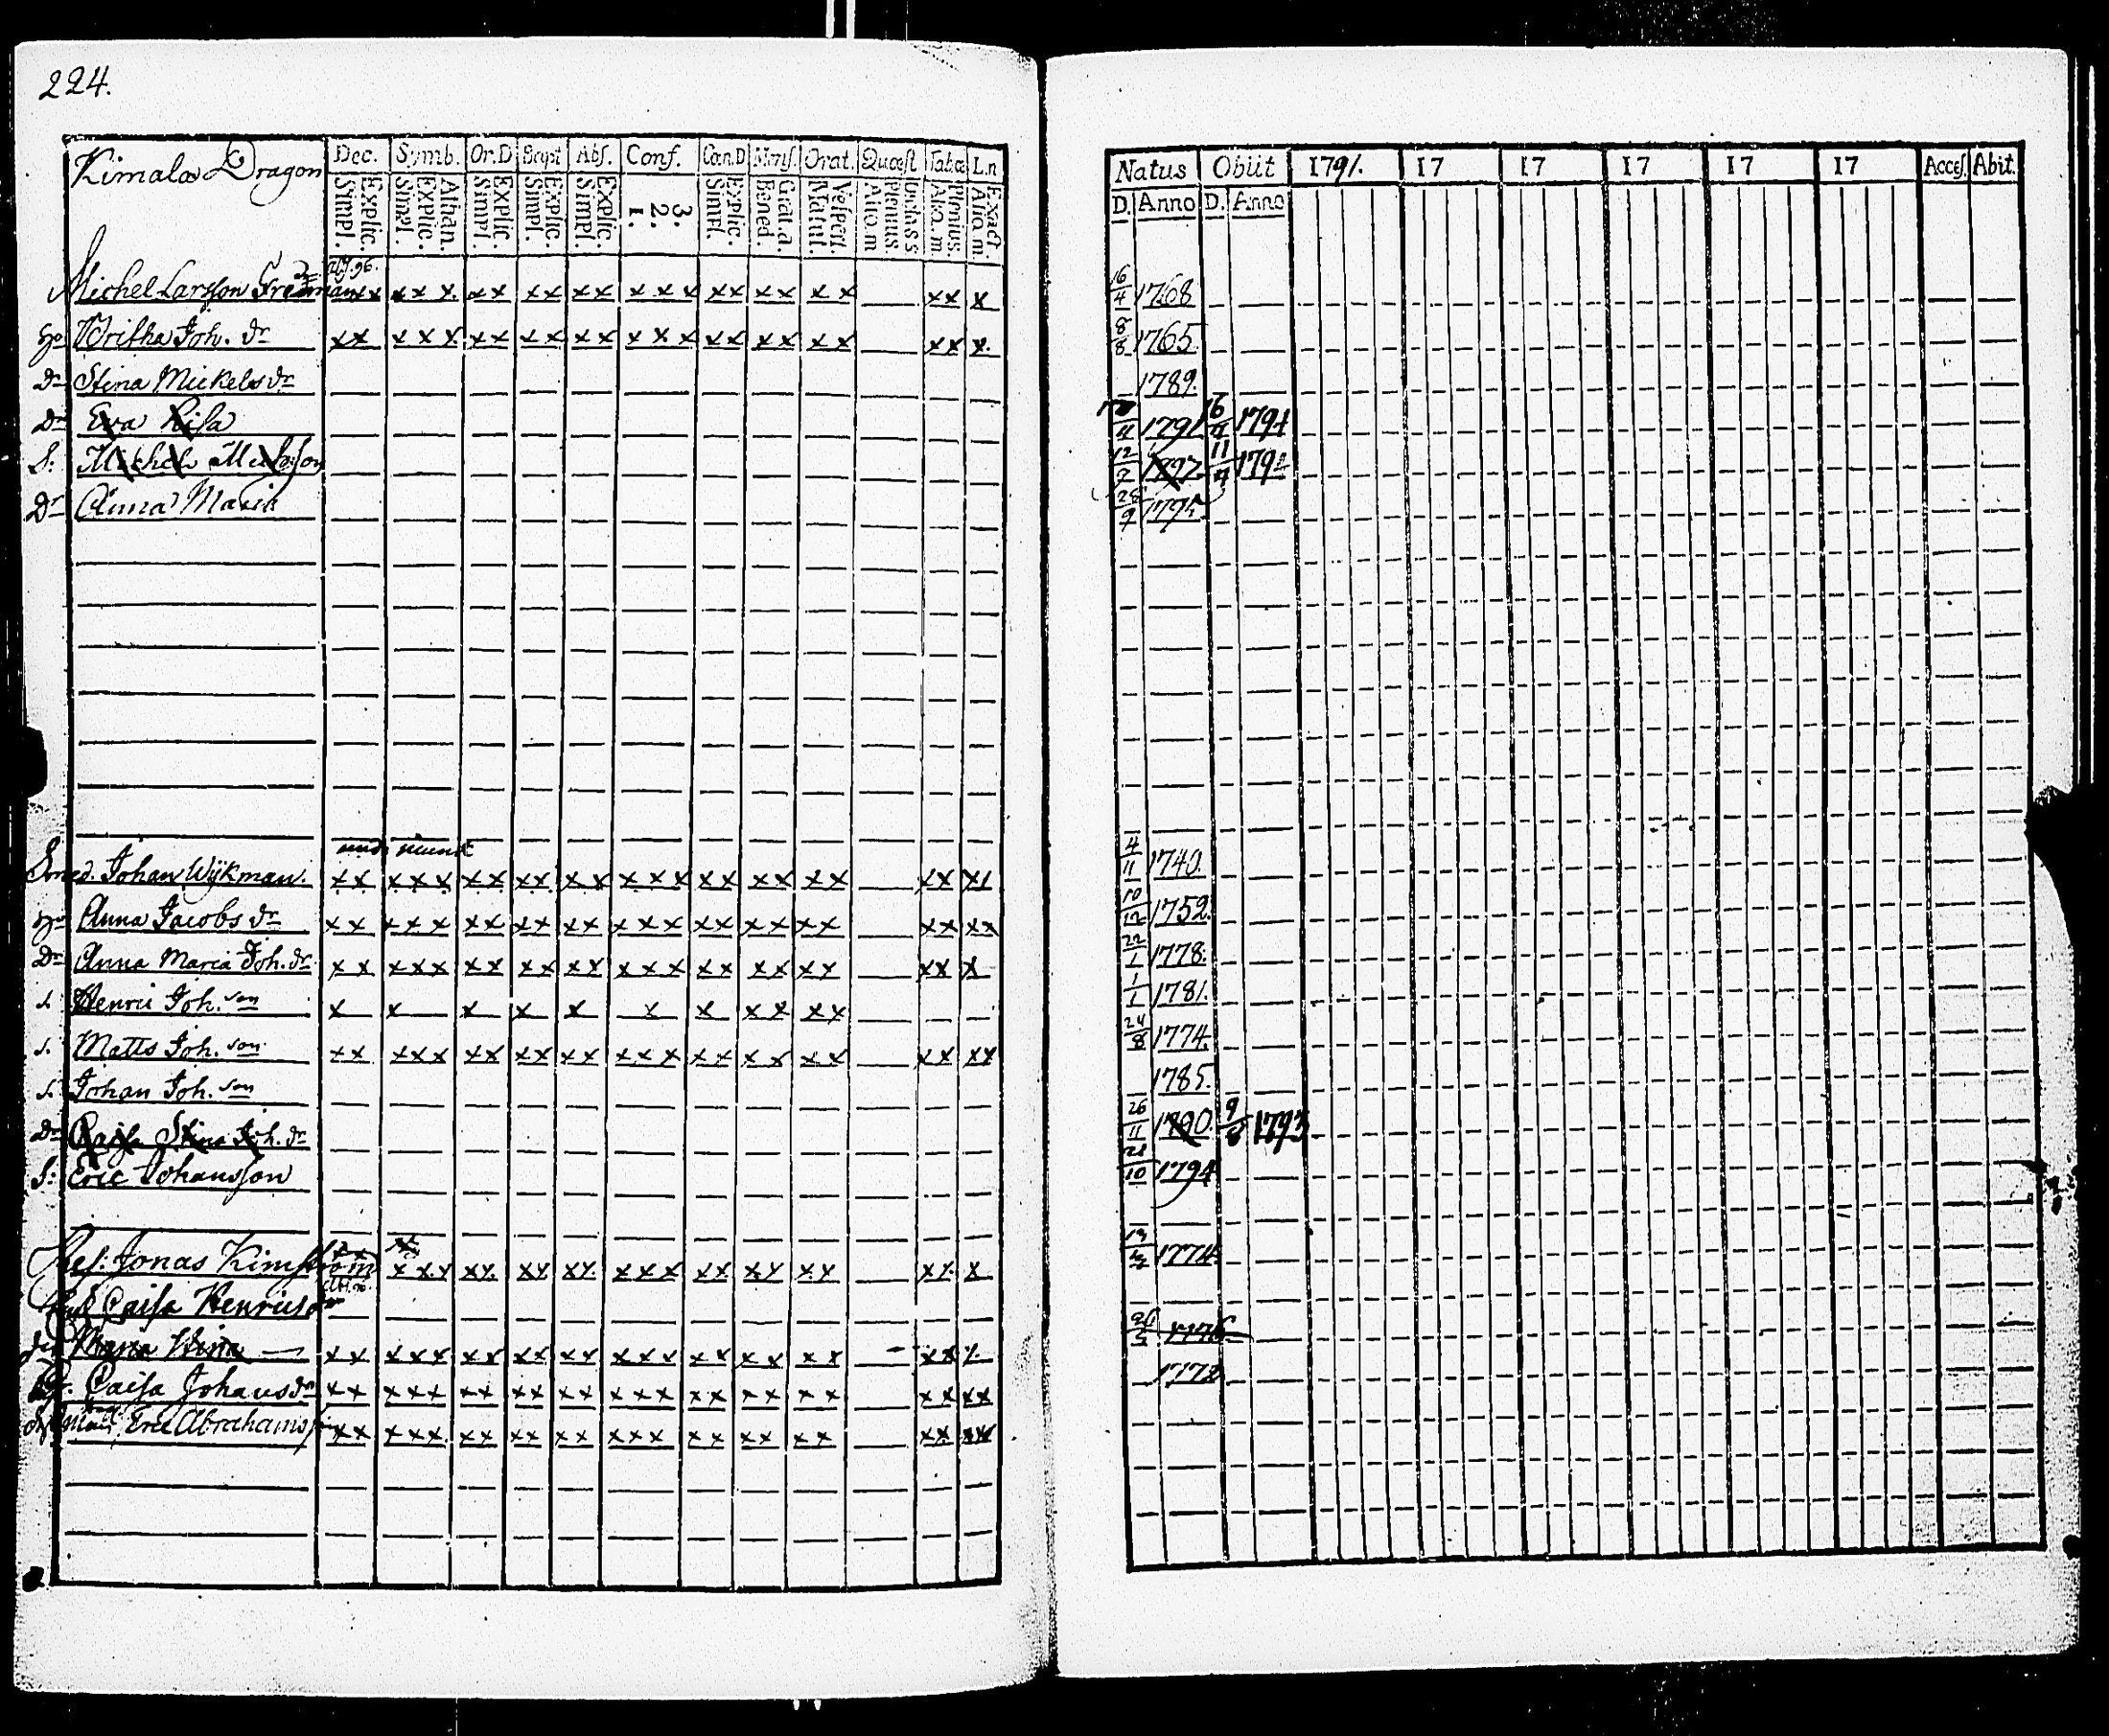 224.
Kimala Dragon
Dec. Symb. Or.D Bapt Abs. Conf. Cœn.D Mens. Orat. Quæst Tab.œ L.n
Explic. Simpl. Athan. Explic. Simpl. Explic. Simpl. Explic. Simpl. Explic. Simpl. 3. 2. 1. Explic. Simpl. Grat.a. Bened. Vespert. Matut. Plenius Aliq.m Plenius. Aliq.m. Exact Aliq.m.
Michel Larsson Fredman xx xx x. xx xx xx x x x xx xx x x xx x
Writka Joh. dr xx xxx xx xx xx x x x xx xx xx xx x.
Dr Stina Mickels dr
Dr Eva Lisa
S: Michel Mick.son
Dr Anna Maria
Johan Wijkman. xx xxx xx xx. xx xxx xx xx xx xx xx
Anna Jacobs dr xx xxx xx xx xx xxx xx xx xx xx xx
Dr Anna Maria Joh. dr xx xxx xx xx xx xxx xx xx xx xx x
s. Henric Joh. son x x x x x x x xx xx
s. Matts Joh. son xx xxx xx xx xx xxx xx xx xx xx xx
s. Johan Joh. son
Dr Caisa Stina Joh. dr
S: Eric Johansson
Jonas Kimström xxx xx. xx xx. xxx xx xx xx xx. x
Caisa Henricsdr
Maria Stina xx xxx xx xx xx xxx xx xx xx xx x
Caisa Johansdr xx xxx xx xx xx xxx xx xx xx xx xx
Eric Abrahamss xx xxx. xx xx xx xxx xx xx xx xx xx
Natus Obiit 1791. 17 17 17 17 17 Acces. Abit.
D. Anno D. Anno
16/4 1768
8/8 1765
1789.
1791 16 1791
12 1792 11 1792
28/9 1795
4/11 1740.
10/12 1752.
22/1 1778.
1/1 1781.
24/8 1774.
1785.
26/11 1790. 9/8 1793
21/10 1794
19 1774.
1776
1772